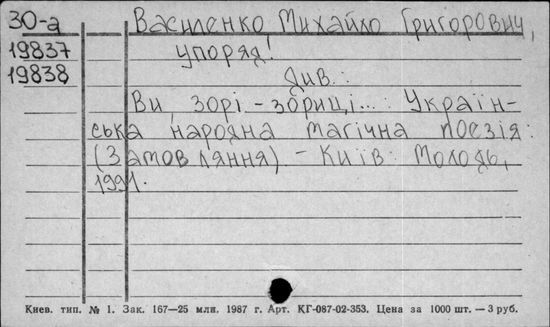 30-а Василенко Михайло Григорович,
19837 упоряд!
19838 Див.:
Ви, зорі-зориці... : Україн-
ська народна магічна поезія :
(Замовляння) - Київ: Молодь,
1991.
Киев. тип. № 1. Зак. 167—25 млн. 1987 г. Арт. КГ-087-02-353. Цена за 1000 шт. — 3 руб.